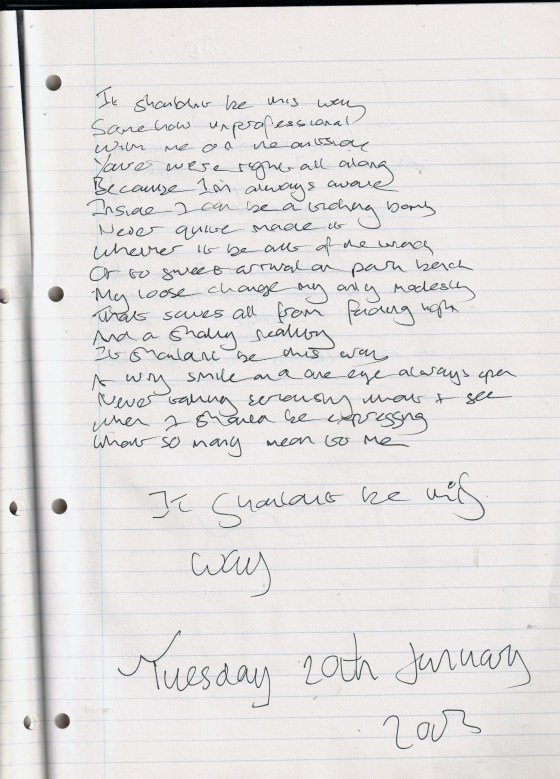 It shouldnt be this way
Somehow unprofessional
With me on the outside
You were right all along
Because I'm always aware
Inside I can be a ticking bomb
Never quite made it
Whether it be out of the
Or to sweet arrival on park bench
My loose change my only modesty
Thats saves all from fading light
And a shaky reality
It shouldnt be this way
A wry smile and one eye always open
Never taking seriously what I see
When I should be expressing
What so many mean to me
It shouldnt be this
way
Tuesday 20th January
2003